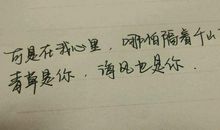 可是在我心里，哪怕隔着千山
青草是你，海风也是你．